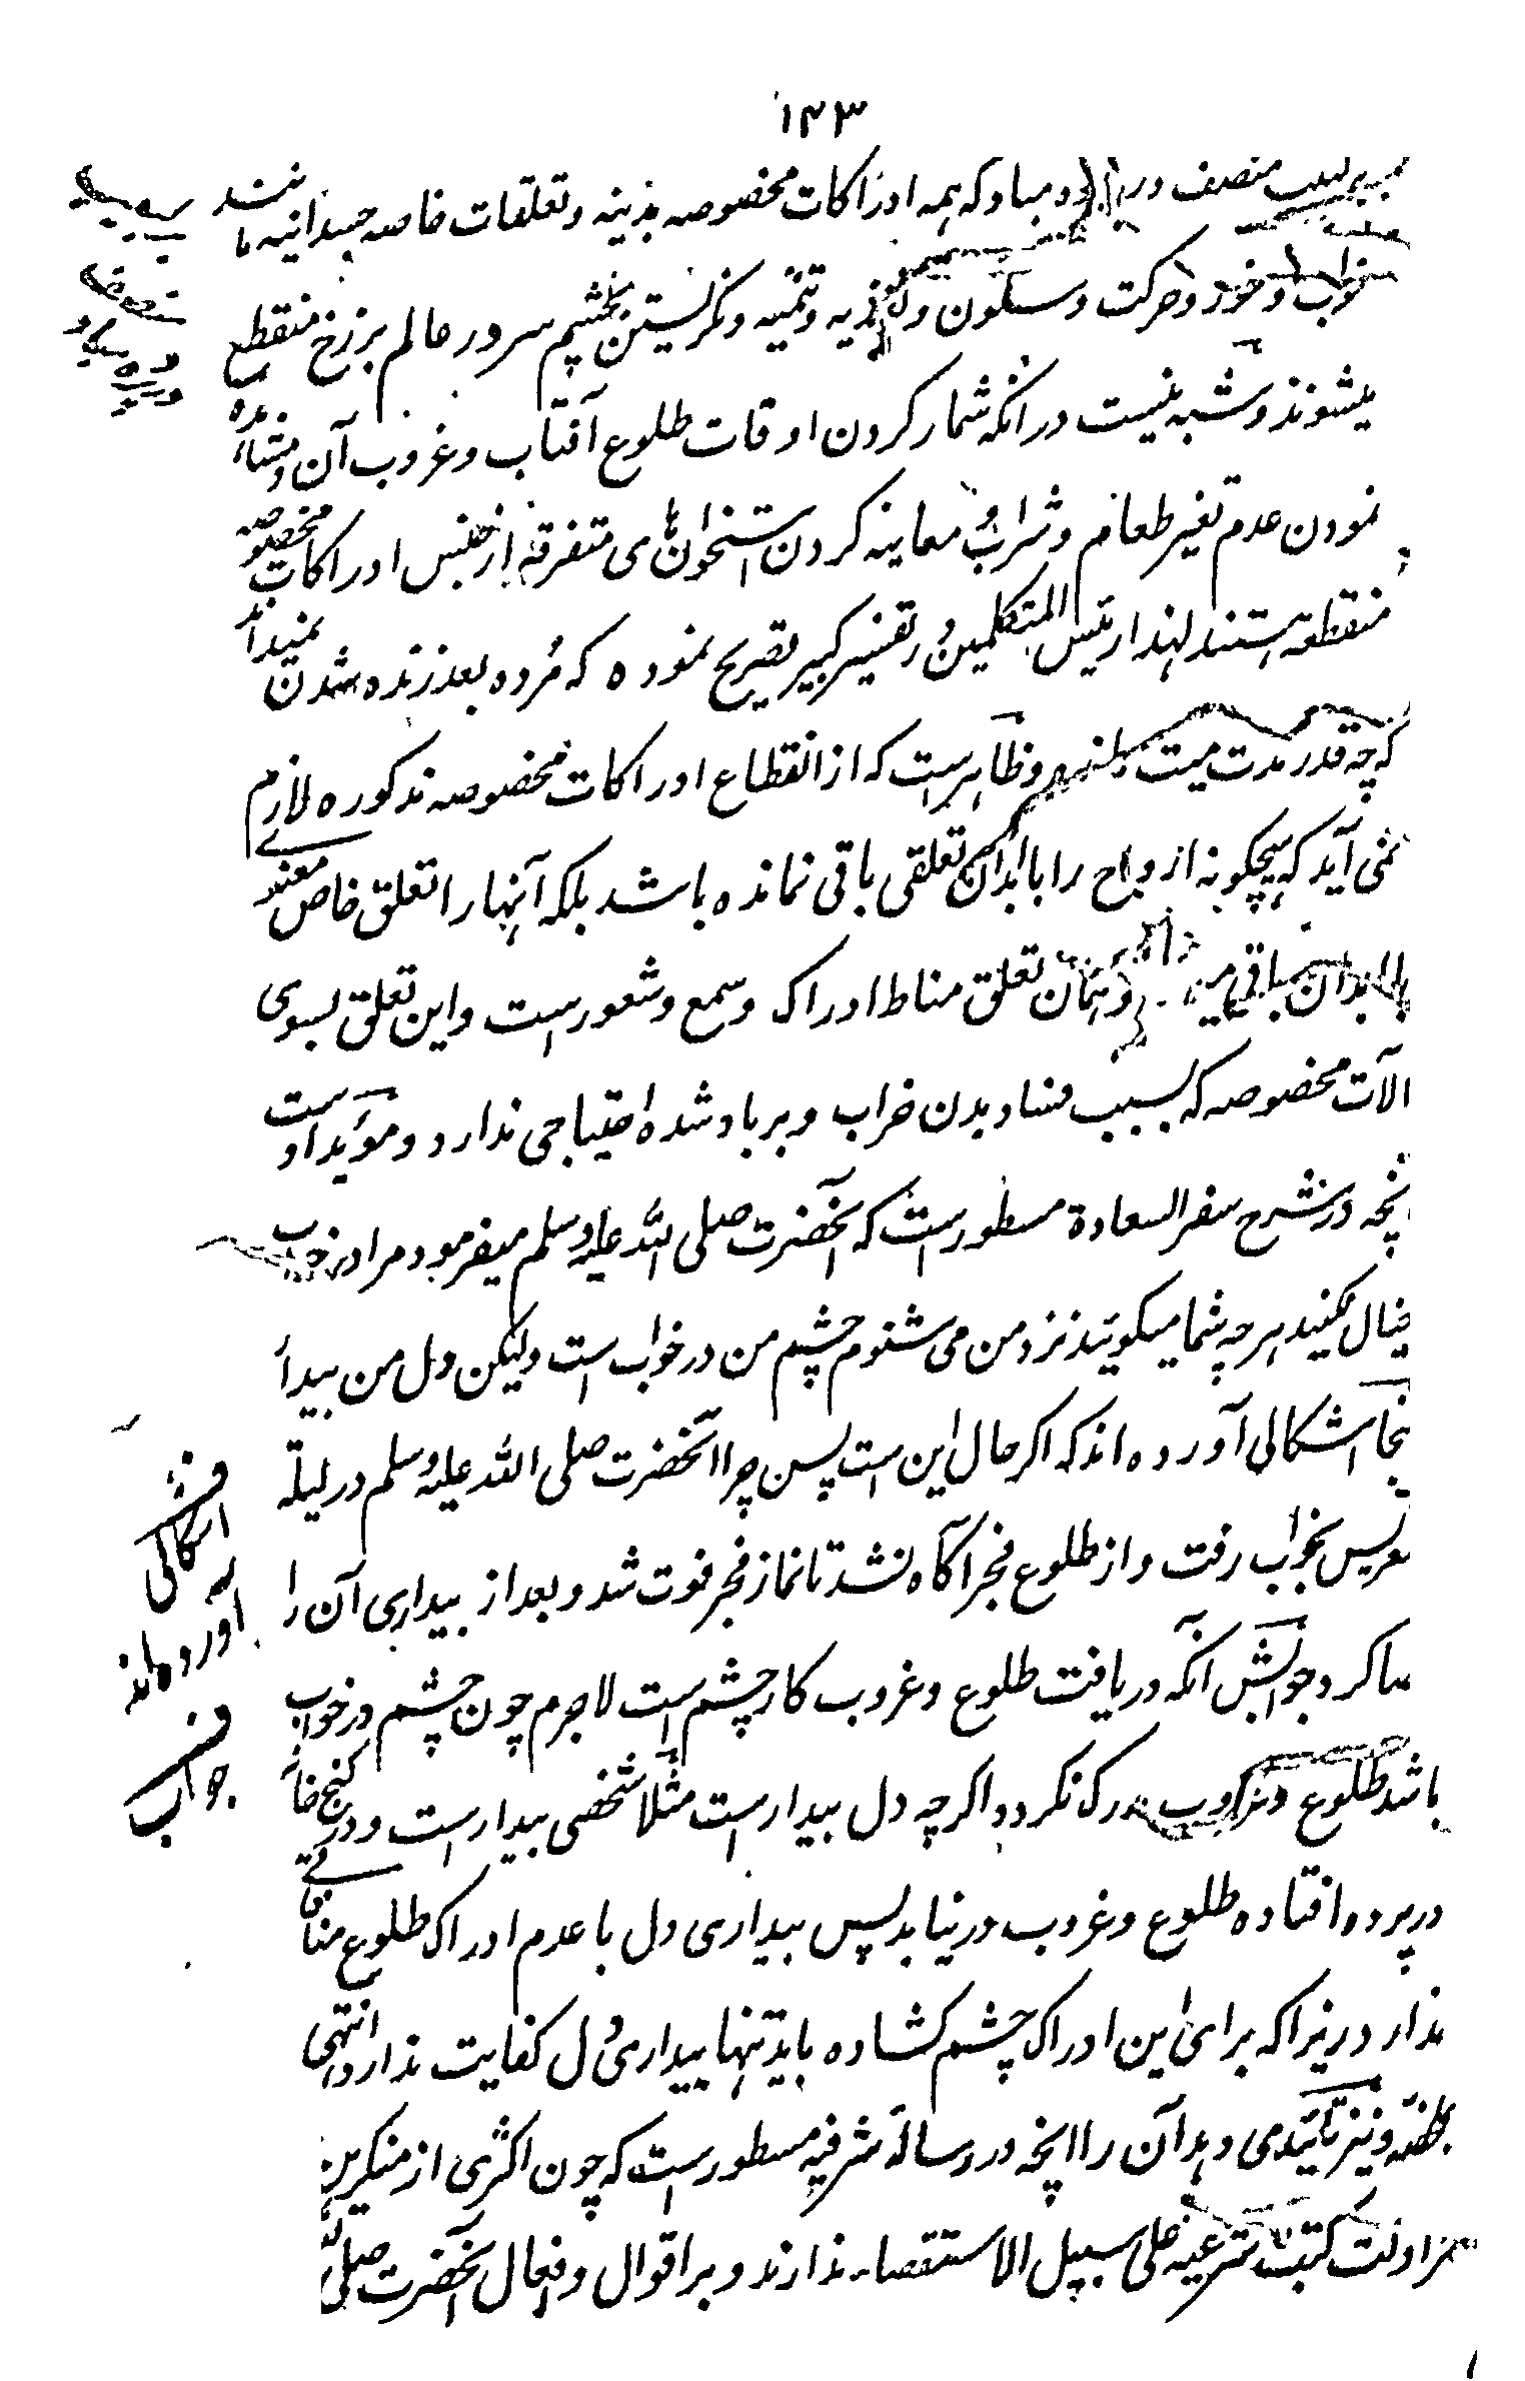 ۱۴۳
منصف در مباد که همه ادراکات مخصوصه بدنیه و تعلقات خاصه جسدانیه مانند
خواب و خور و حرکت و سکون و تغذیه و تنمیه و نگریستن بچشم سر در عالم برزخ منقطع
میشوند و شبه نیست در انکه شمار کردن اوقات طلوع آفتاب و غروب آن و مشاهده
نمودن عدم تغیر طعام و شراب و معاینه کردن استخوان های متفرقه از جنس ادراکات مخصوصه
منقطعه هستند لهذا رئیس المتکلمین در تفسیر کبیر تصریح نموده که مرده بعد زنده شدن نمیداند
که چه قدر مدت میت و ظاهر است که از انقطاع ادراکات مخصوصه مذکوره لازم
نمی آید که هیچگونه ارواح را با ابدان تعلقی باقی نمانده باشد بلکه آنها را تعلق خاص معتد
با ابدان باقی و همان تعلق مناط ادراک و سمع و شعور است و این تعلق بسوی
آلات مخصوصه که بسبب فساد بدن خراب و برباد شده احتیاجی ندارد و مؤید اوست
انچه در شرح سفر السعادة مسطور است که آنحضرت صلی الله علیه وسلم میفرمود مرا در خواب
خیال نکنید هر چه شما میگوئید نزد من می شنوم چشم من در خواب است و لیکن دل من بیدار
نجا اشکالی آورده اند که اگر حال این است پس چرا آنحضرت صلی الله علیه وسلم در لیلة
تعریس بخواب رفت و از طلوع فجر آگاه نشد تا نماز فجر فوت شد و بعد از بیداری آن را
ضا کرد جوابش آنکه دریافت طلوع و غروب کار چشم است لاجرم چون چشم در خواب
باشد طلوع و غروب مدرک نگردد اگر چه دل بیدار است مثلا شخصی بیدار است و در کنج خانه
در پرده افتاده طلوع و غروب در نیابد پس بیداری دل با عدم ادراک طلوع منافاتی
ندارد زیرا که برای این ادراک چشم کشاده باید تنها بیداری دل کفایت ندارد انتهی
بلفظه و نیز تائید می دهد آن را انچه در رسالهٔ شریفیه مسطور است که چون اکثری از منکرین
مزاولت کتب شرعیه علی سبیل الاستقصاء ندارند و بر اقوال و افعال آنحضرت صلی الله
ف
اشکالی
که
آورده اند
ف
جواب